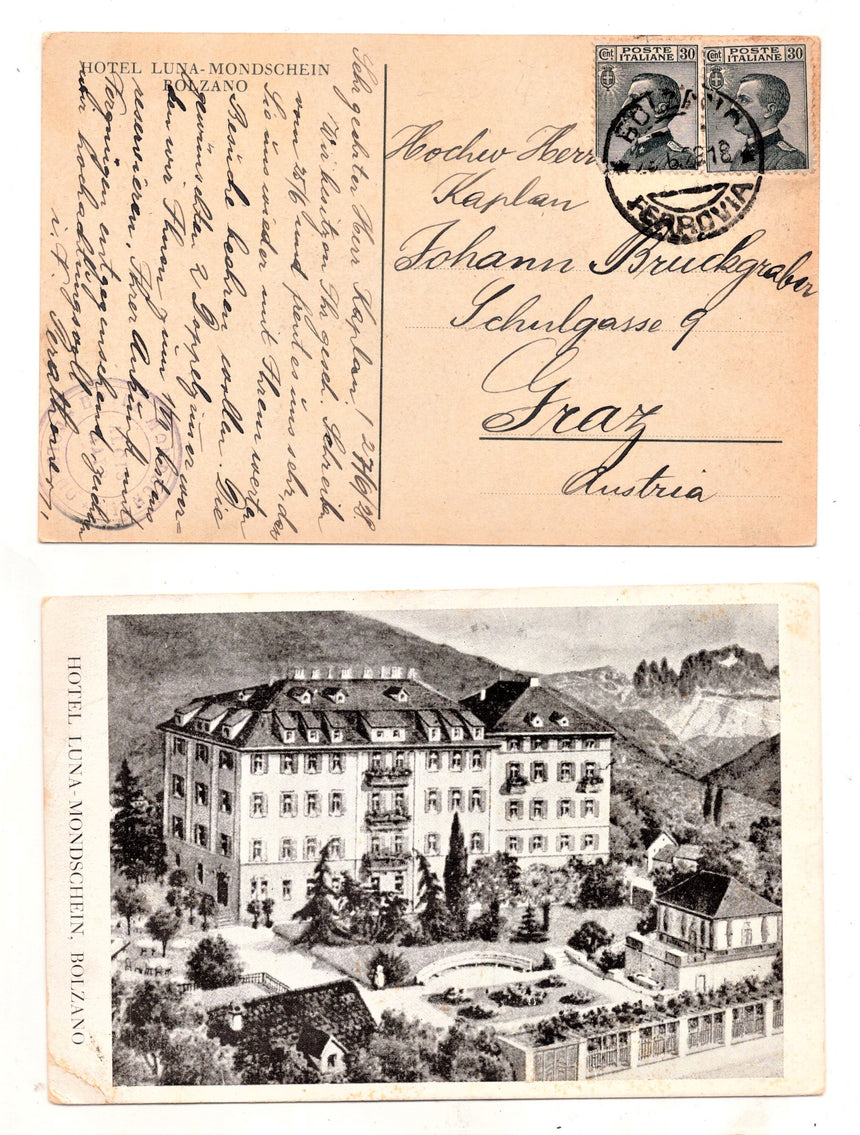 HOTEL LUNA-MONDSCHEIN
BOLZANO
Cent 30
POSTE
ITALIANE
Cent 30
POSTE
ITALIANE
BOLZANO
FERROVIA
Hochw Herr
Kaplan
Johann Bruckgraber
Schulgasse 9
Graz
Austria
27/6/28
Sehr geehrter Herr Kaplan!
Wir besitzen Ihr gesch. Schreib.
vom 25/6 und freut es uns sehr, dass
Sie uns wieder mit Ihrem werten
Besuche beehren wollen. Die
gewünschten 2 Doppelzimmer wer-
den wir Ihnen zum
reservieren. Ihrer Ankunft mit
Vergnügen entgegensehend zeichnen
wir hochachtungsvoll
i. V.
HOTEL LUNA-MONDSCHEIN, BOLZANO